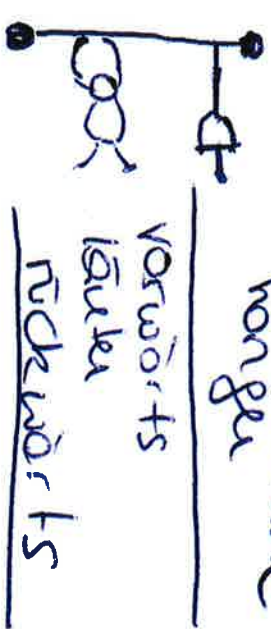 hangeln
vorwärts
laufen
rückwärts